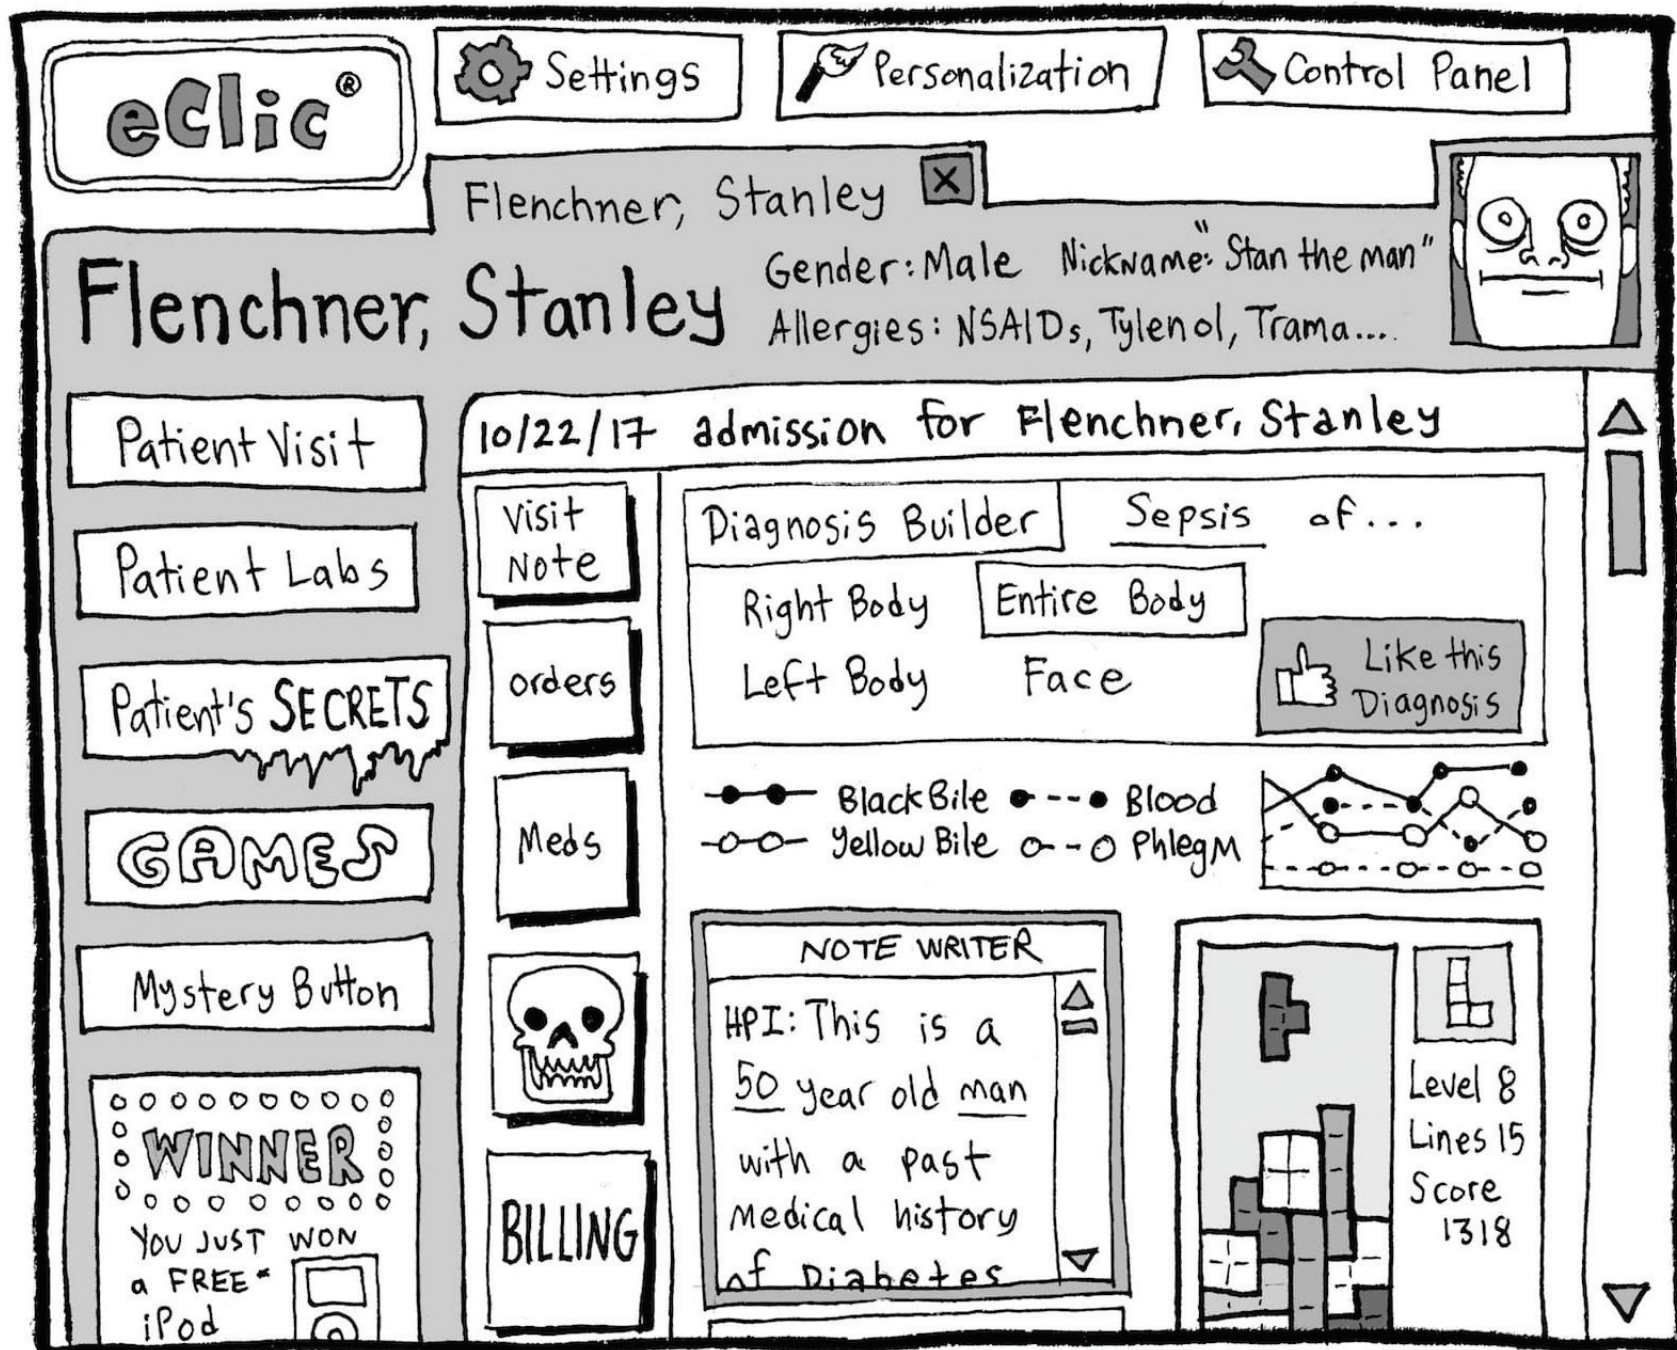 eClic®
Settings
Personalization
Control Panel
Flenchner, Stanley
X
Flenchner, Stanley
Gender: Male Nickname: "Stan the man"
Allergies: NSAIDs, Tylenol, Trama....
Patient Visit
Patient Labs
Patient's SECRETS
GAMES
Mystery Button
WINNER
YOU JUST WON
a FREE*
iPod
10/22/17 admission for Flenchner, Stanley
Visit
Note
orders
Meds
BILLING
Diagnosis Builder
Sepsis of...
Right Body
Entire Body
Left Body
Face
Like this
Diagnosis
Black Bile
Blood
Yellow Bile
Phlegm
NOTE WRITER
HPI: This is a
50 year old man
with a past
Medical history
of Diabetes
Level 8
Lines 15
Score
1318